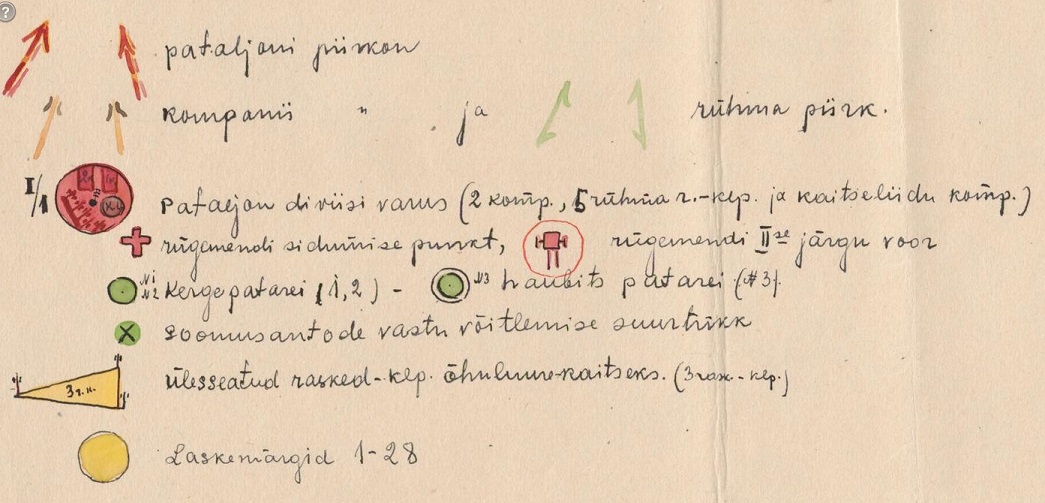 pataljoni piirkon
kompanii " ja rühma piirk.
I/1 pataljon diviisi varus (2 komp., 5 rühma r.-klp. ja kaitseliidu komp.)
rügemendi sidumise punkt, rügemendi II se järgu voor
N1 N2 Kergepatarei (1,2) - N3 haubits patarei (#3).
soomusautode vastu võitlemise suurtükk
3 r.k. ülesseatud rasked-klp. õhuluure-kaitseks. (3 rask.-klp.)
Laskemärgid 1-28